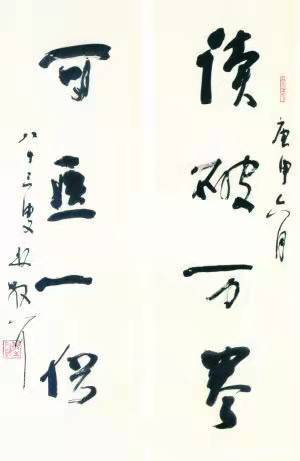 读破万卷
庚申六月
可医一俗
八十三叟林散耳